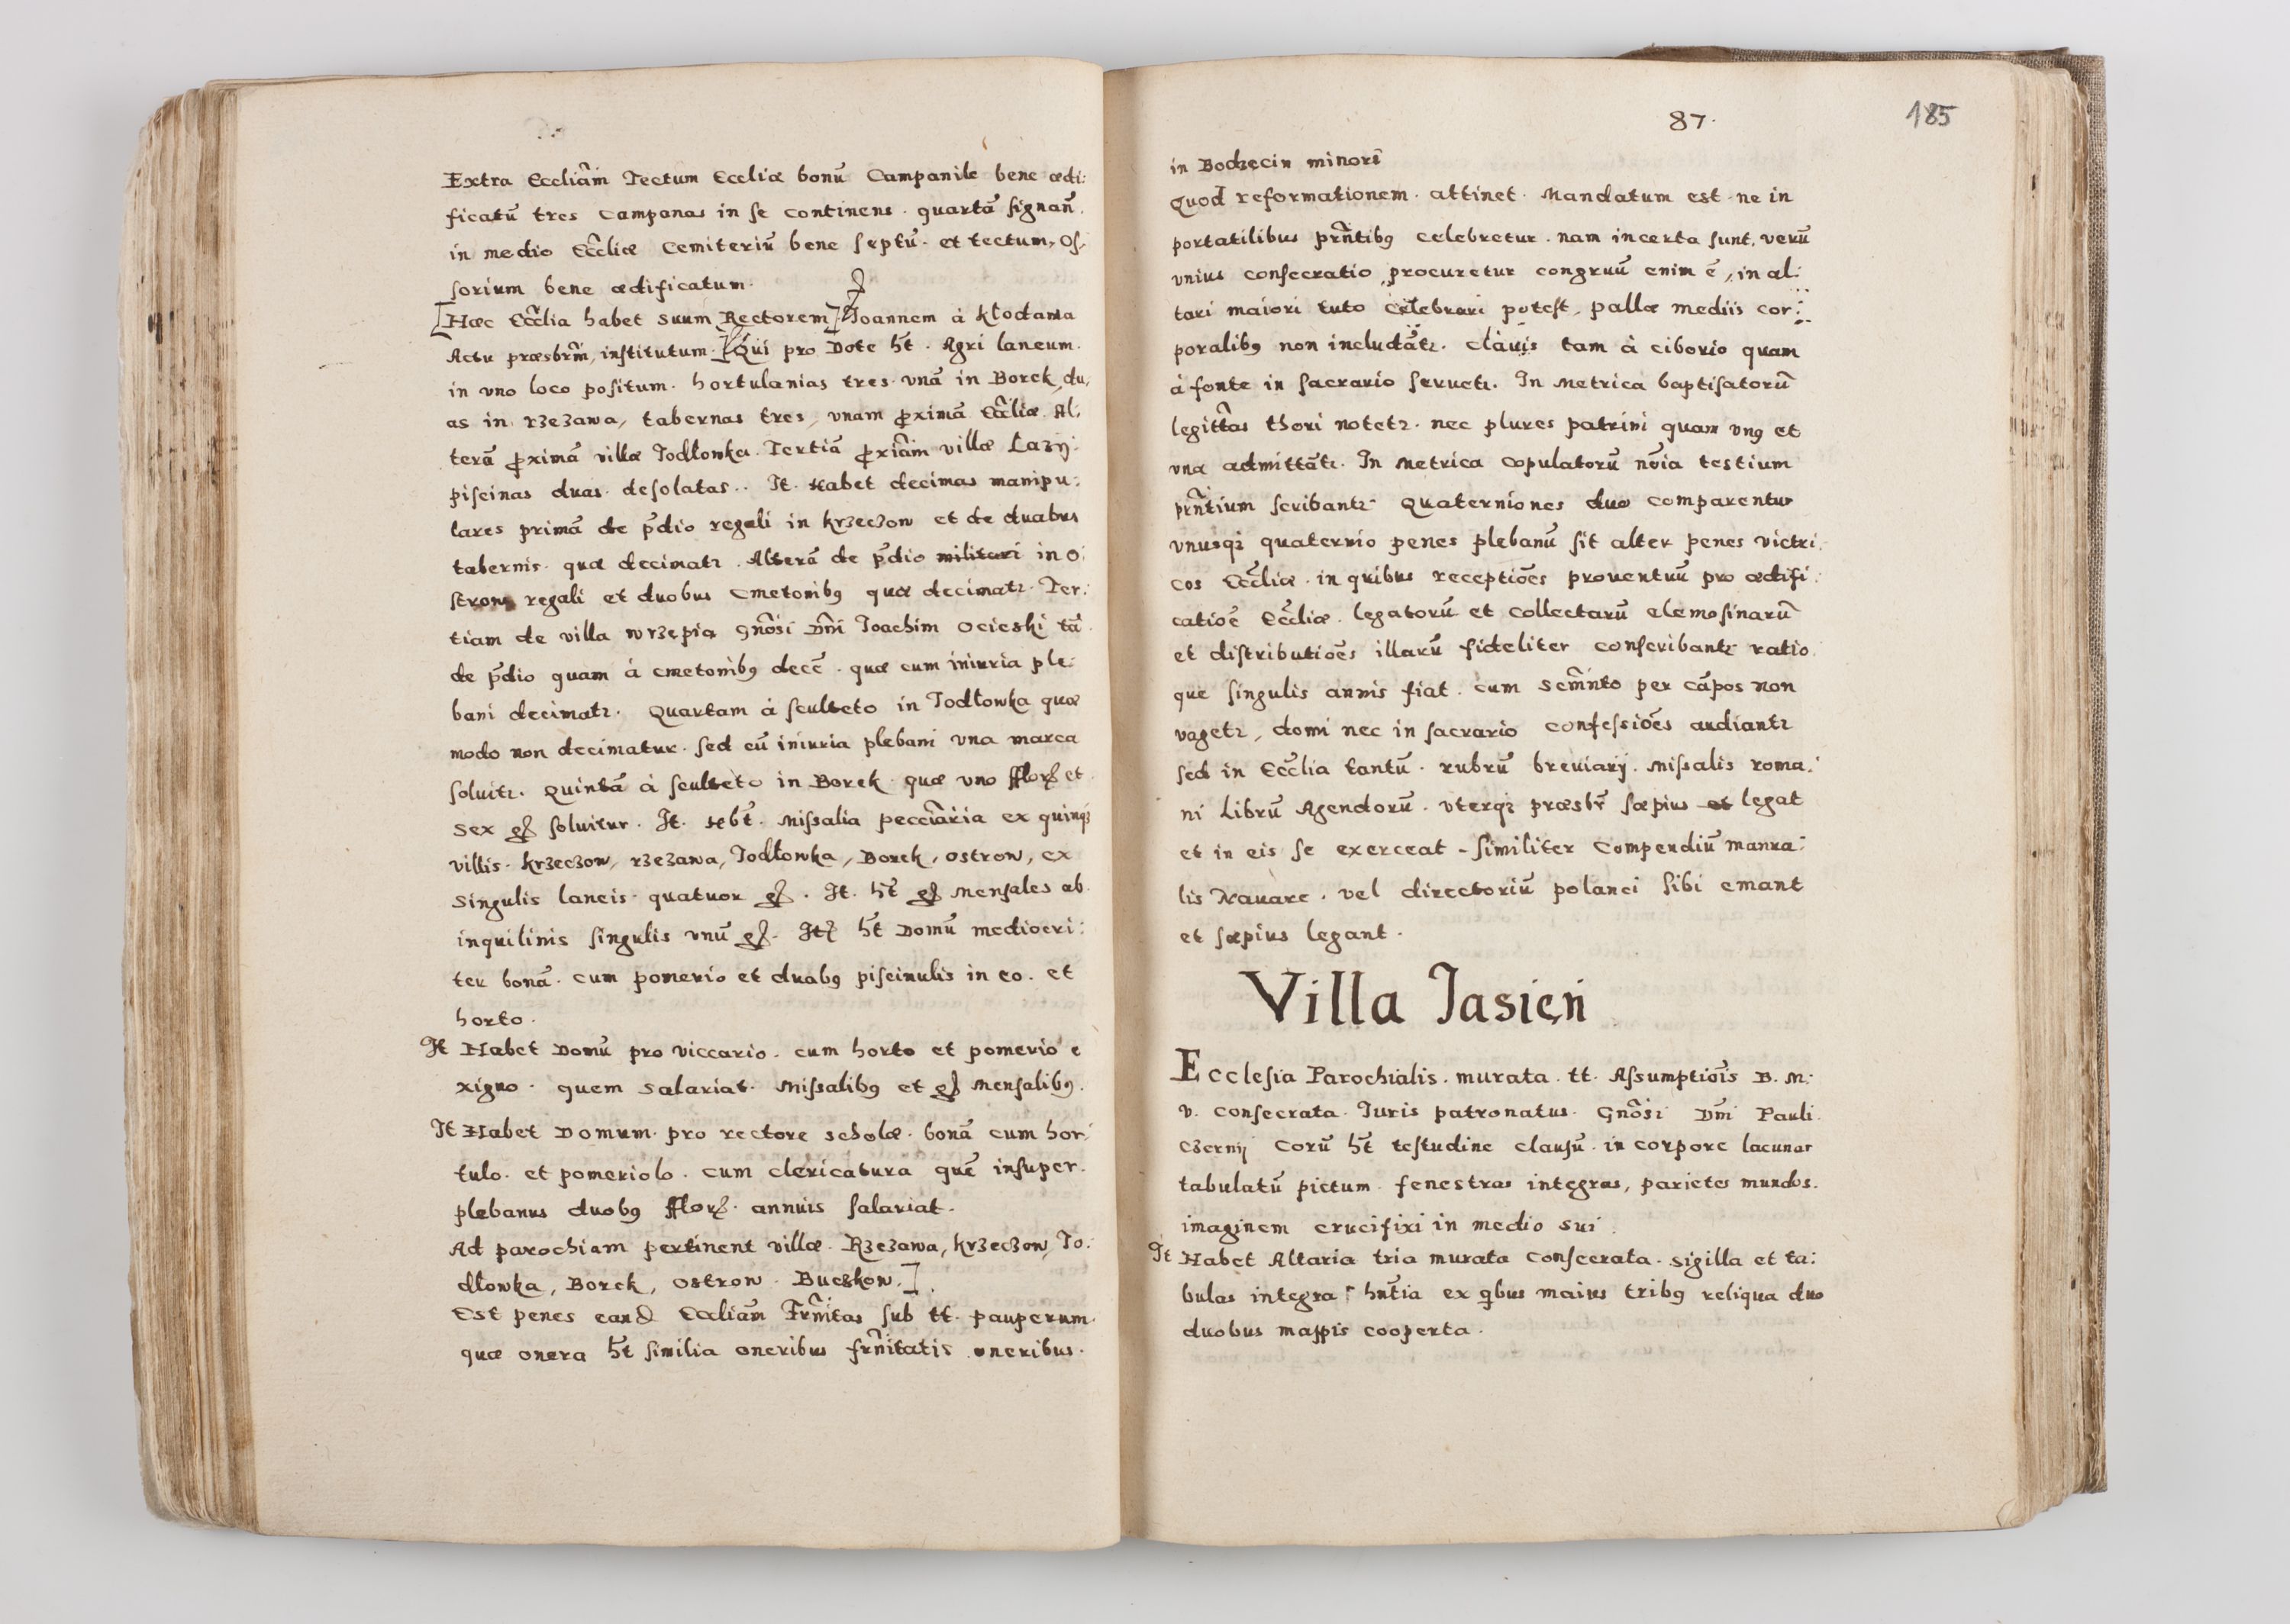 Extra Eccliã̂m Tectum Eccliæ bonũ Campanile bene ædi:
ficatũ tres campanas in se continens. quartã signañ.
in medio Ecc̃liæ Cemiteriũ bene septũ. et tectum, Os,
sorium bene ædificatum.
[Hæc Ecc̃lia habet suum Rectorem] Joannem à Kłodawa
Actu præsbrm̃, institutum. [Qui pro Dote ht̃. Agri laneum.
in uno loco positum. hortulanias tres. vnã in Borek, du,
as in rzezawa, tabernas tres, vnam proximã Ecc̃liæ. Al:
terã proximã villæ Jodłowka. Tertiã proxiãm villæ Łazÿ:
piscinas duas. desolatas.. It. Habet decimas manipu:
lares primã de p̃dio regali in krzeczow et de duabus
tabernis. quæ decimatr. Alterã de p̃dio militari in O:
strow regali et duobus cmetonibꝰ quæ decimatr. Ter:
tiam de villa wrzepia Gnõsi Dñi Joachim Ocieski tã
de p̃dio quam à cmetonibꝰ decẽ. quæ cum iniuria ple:
bani decimatr. Quartam à sculteto in Jodłowka quæ
modo non decimatur. sed cũ iniuria plebani vna marca
soluitr. Quintã à sculteto in Borek. quæ vno fflor et
sex gſ soluitur. It. Hbt̃. Missalia pecc̃iãria ex quinqꝫ
villis. krzeczow, rzezawa, Jodłowka, Borek, Ostrow, ex
singulis laneis. quatuor gſ. It. ht̃ gſ Mensales ab
inquilinis singulis vnũ gſ. It ht̃ Domũ mediocri:
ter bonã. cum pomerio et duabꝰ piscinulis in eo. et
horto.
It Habet Domũ pro viccario. cum horto et pomerio e
xiguo. quem salariat. Missalibꝰ et gſ Mensalibꝰ.
It Habet Domum. pro rectore scholæ. bonã cum hor:
tulo. et pomeriolo. cum clericatura quẽ insuper.
plebanus duobꝰ fflor. annuis salariat.
Ad parochiam pertinent villæ. Rzezawa, krzeczow, Jo:
dłowka, Borek, Ostrow. Buczkow.].
Est penes eand Eccliãm Frñitas sub tt. pauperum.
quæ onera ht̃ similia oneribus frñitatis oneribus.
87.
185
in Bodzęcin minori
Quod reformationem. attinet. Mandatum est. ne in
portatilibus prñtibꝰ celebretur. nam incerta sunt, verũ
vnius consecratio, procuretur congruũ enim ẽ, in al:
tari maiori tuto celebrari potest, pallæ mediis cor:
poralibꝰ non includãtr. clauis tam à ciborio quam
à fonte in sacrario seruetr. In Metrica baptisatorũ
legitĩas thori notetr. nec plures patrini quam vnꝰ et
vna admittãtr. In Metrica copulatorũ nõia testium
prñtium scribantr. Quaterniones duo comparentur
vnusqꝫ quaternio penes plebanũ sit alter penes victri:
cos Ecc̃liæ. in quibus receptiões prouentuũ pro ædifi:
catiõe Ecc̃liæ. legatorũ et collectarũ elemosinarũ
et distributiões illarũ fideliter conscribantr ratio
que singulis annis fiat. cum Scm̃nto per cãpos non
vagetr, domi nec in sacrario confessiões audiantr
sed in Ecc̃lia tantũ. rubrũ breuiarÿ. Missalis roma:
ni Librũ Agendorũ. vterqꝫ præsbr̃ sæpius et legat
et in eis se exerceat. similiter Compendiũ manua:
lis Nauare. vel directoriũ polanci sibi emant
et sæpius legant.
Villa Jasień
Ecclesia Parochialis. murata. tt. Assumptiõis B. M:
V. consecrata. Juris patronatus. Gnõsi Dñi Pauli
Czernÿ Corũ ht̃ testudine clausũ. in corpore lacunar
tabulatũ pictum. fenestras integras, parietes mundos.
imaginem crucifixi in medio sui.
It Habet Altaria tria murata consecrata. sigilla et ta:
bulas integra hñtia ex qibus maius tribꝰ reliqua duo
duobus mappis cooperta.